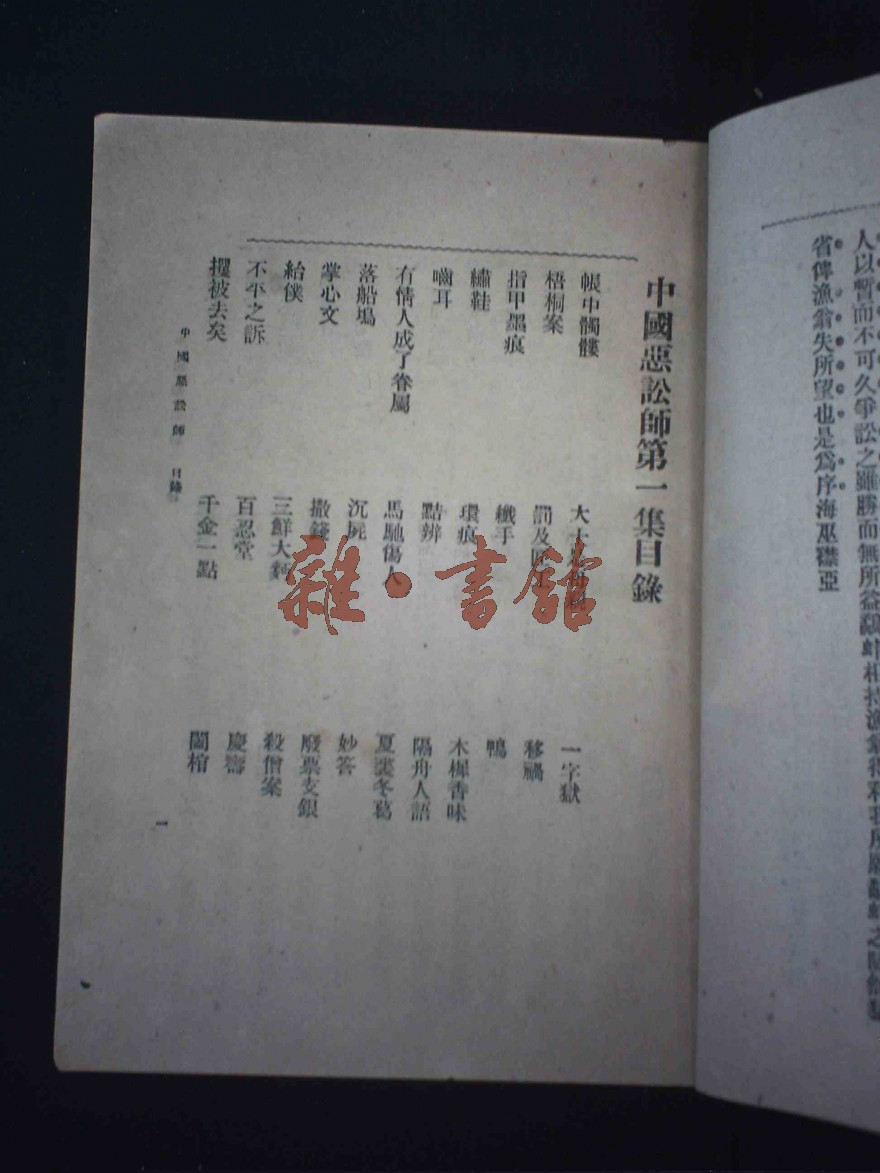 人以暫而不可久爭訟之雖勝而無所益鷸蚌相持漁翁得利我所願鷸蚌之
省俾漁翁失所望也是為序海巫襟亞
中國惡訟師第一集目錄
帳中髑髏 大士 一字獄
梧桐案 罰及 移禍
指甲墨痕 纖手 鴨
繡鞋 環痕 木樨香味
嚙耳 點辨 隔舟人語
有情人成了眷屬 馬馳傷人 夏裘冬葛
落船塢 沉屍 妙答
掌心文 撒錢 廢票支銀
給僕 三鮮大麪 殺僧案
不平之訴 百忍堂 慶壽
攫被去矣 千金一點 闔棺
中國惡訟師 目錄 一
雜·書館